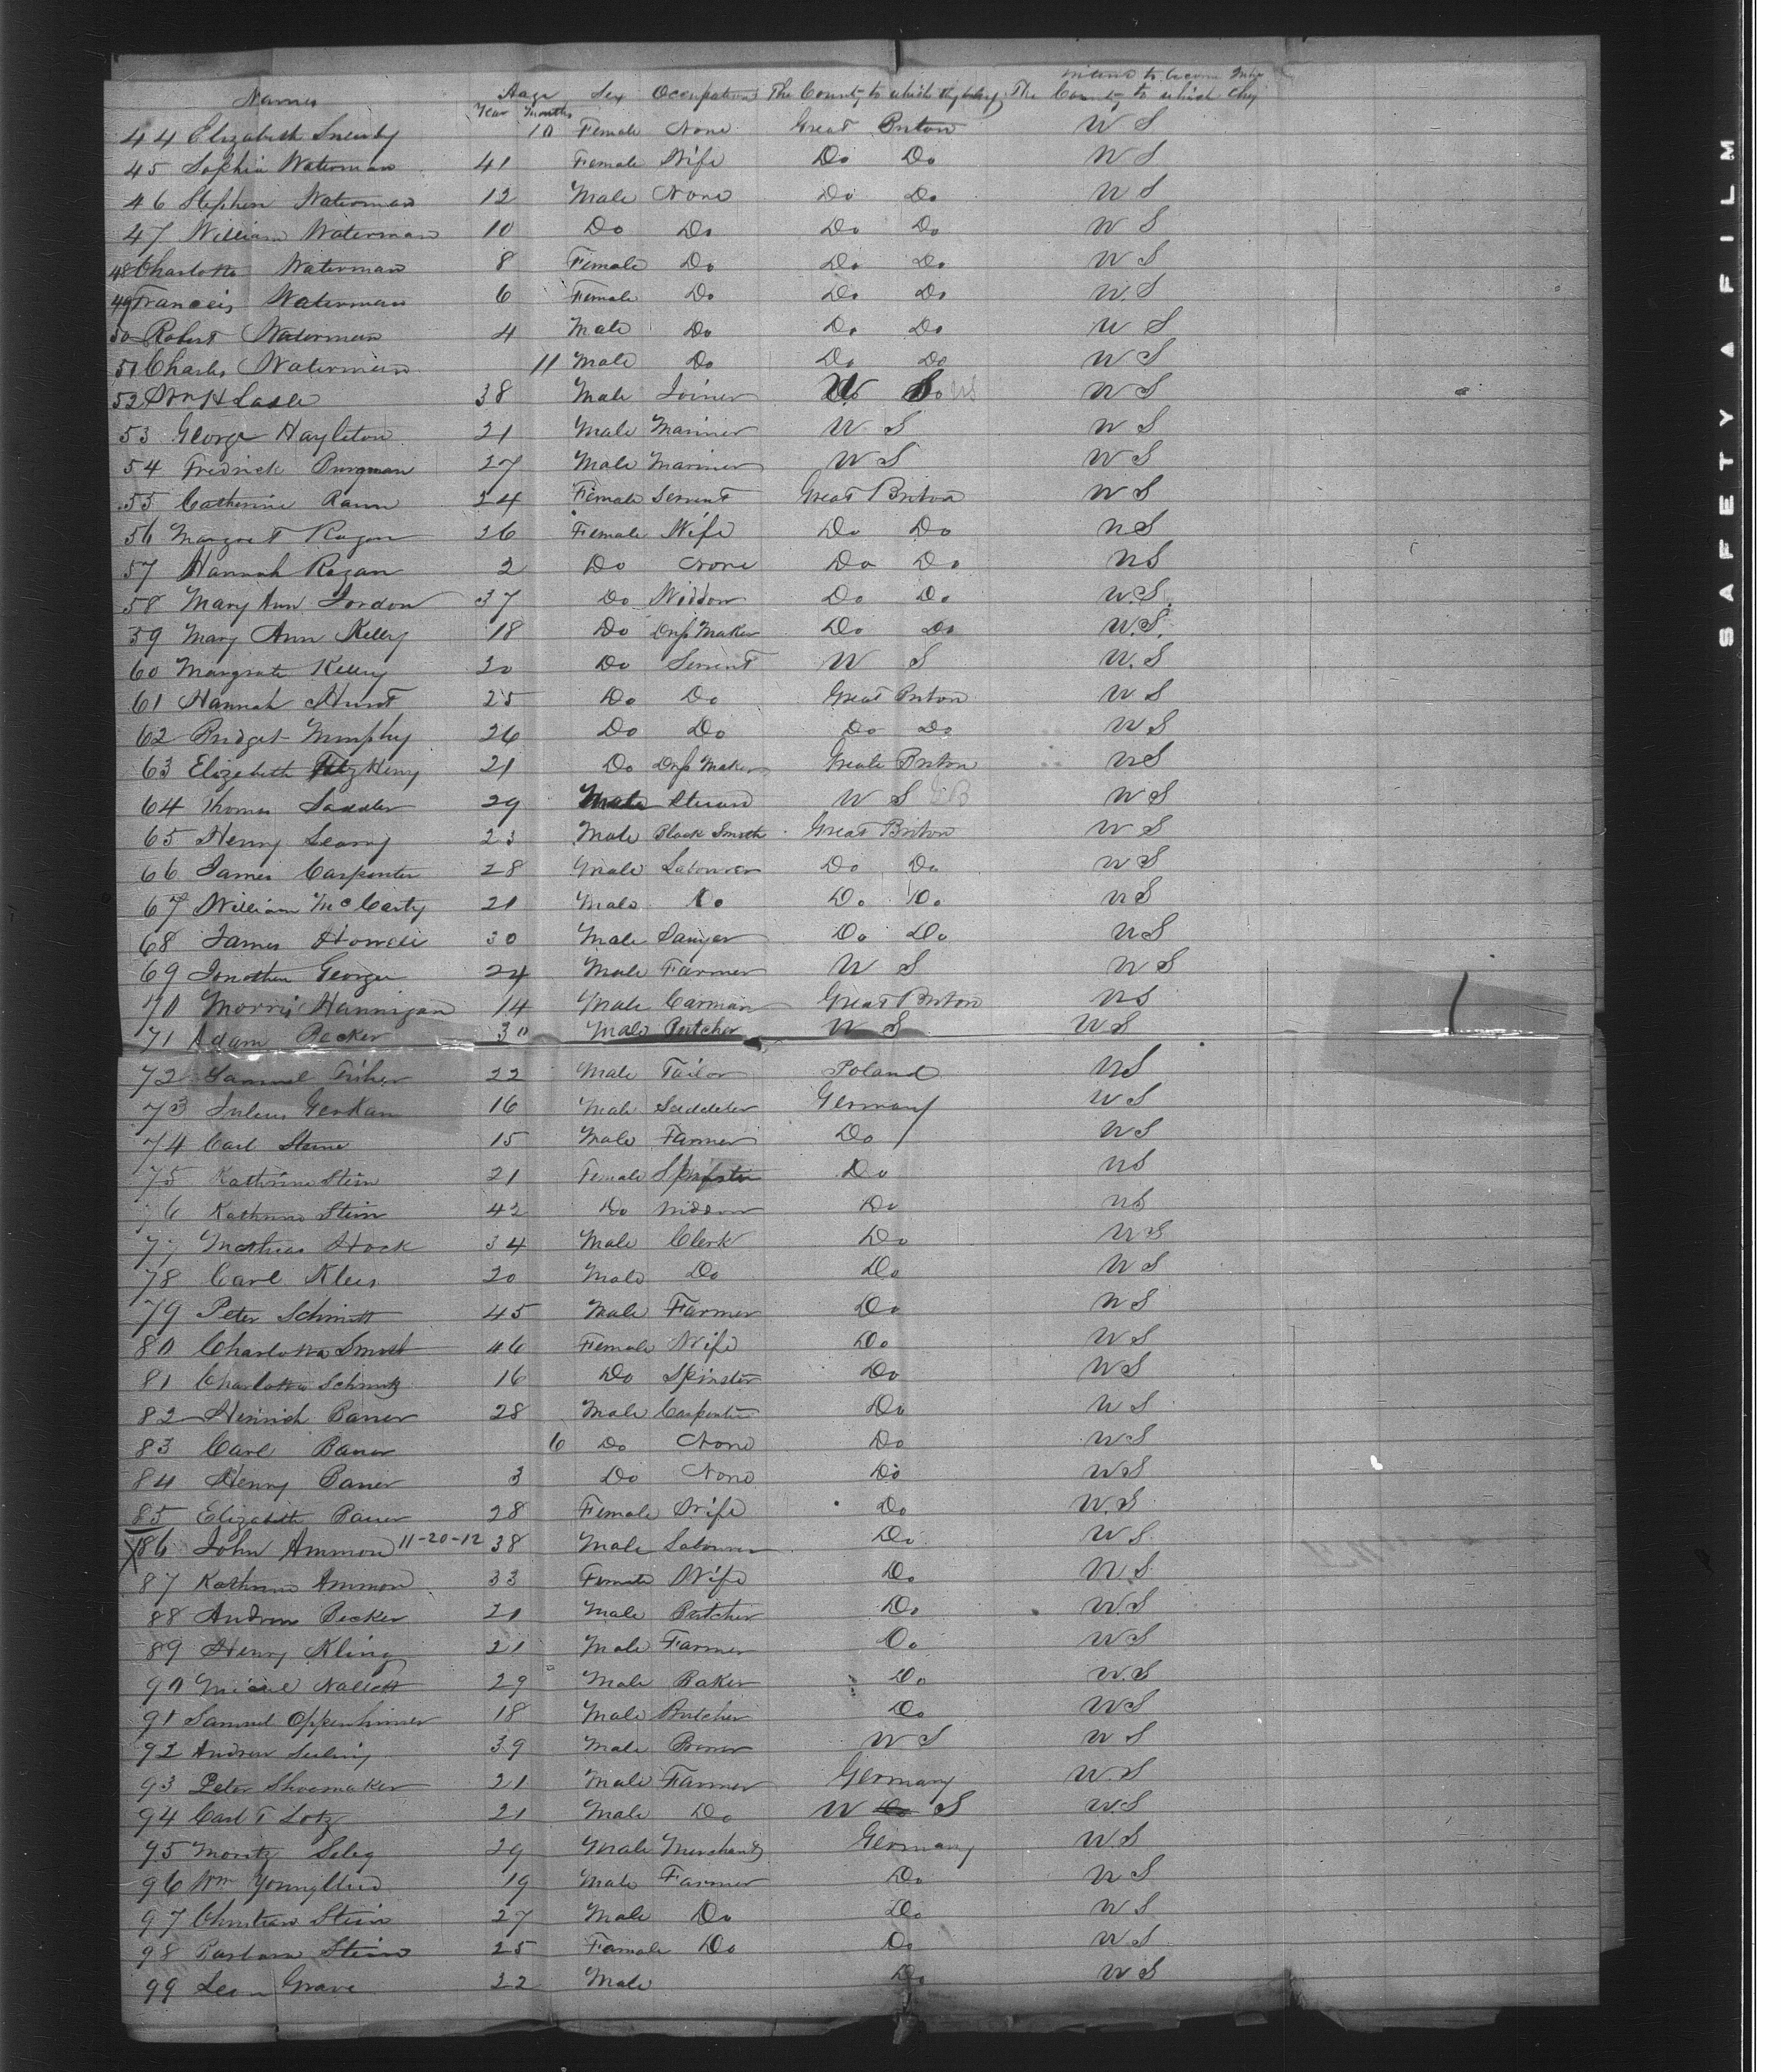 intend to become
Names Aage Sex Occupation The County to which they belong The County to which they
Year Months
44 Elizabeth 10 Female None Great Briton U S
45 Sophia Waterman 41 Female Wife Do Do U S
46 Stephen Waterman 12 Male None Do Do U S
47 William Waterman 10 Do Do Do Do U S
48 Charlotte Waterman 8 Female Do Do Do U S
49 Franceis Waterman 6 Female Do Do Do U.S
50 Robert Waterman 4 Male Do Do Do U S
51 Charles Waterman 11 Male Do Do Do U S
52 Wm H 38 Male Joiner U S U S
53 George Hayleton 21 Male Mariner U S U S
54 Fredrick 27 Male Mariner U S U S
55 Catherine 24 Female Servent Great Briton U S
56 Margret Ragan 26 Female Wife Do Do U S
57 Hannah Ragan 2 Do None Do Do U S
58 Mary Ann Jordon 37 Do Widdow Do Do U.S.
59 Mary Ann Kelly 18 Do Dress Maker Do Do U.S.
60 Margrate Kelley 20 Do Servent U S U.S
61 Hannah Hurst 25 Do Do Great Briton U S
62 Bridget Murphy 26 Do Do Do Do U S
63 Elizabeth FitzHenry 21 Do Dress Maker Greate Briton U S
64 Thomas Saddler 29 Male U S GB U S
65 Henry Searny 23 Male Black Smith Great Briton U S
66 James Carpenter 28 Male Labourer Do Do U S
67 William McCarty 21 Male Do Do Do U S
68 James 30 Male Sawyer Do Do U S
69 Jonathen George 24 Male Farmer U S U S
70 Morris Hannigan 14 Male Carman Great Briton U S
71 Adam Becker 30 Male Butcher U S U S
72 Samuel Fisher 22 Male Tailor Poland U S
73 Julius Gerkan 16 Male Saddeler Germany U S
74 Carl Steine 15 Male Farmer Do U S
75 Kathrina Stein 21 Female Spinster Do U S
76 Kathrina Stein 42 Do Widdow Do U S
77 Mathias Hock 34 Male Clerk Do U S
78 Carl Klees 20 Male Do Do U S
79 Peter Schmitt 45 Male Farmer Do U S
80 Charlotta 46 Female Wife Do U S
81 Charlotta 16 Do Spinster Do U S
82 Heinrich Bauer 28 Male Carpenter Do U S
83 Carl Bauer 6 Do None Do U S
84 Henry Bauer 3 Do None Do U S
85 Elizabeth Bauer 28 Female Wife Do U.S
X86 John Ammon 11-20-12 38 Male Labourer Do U S
87 Kathrina Ammon 33 Female Wife Do U S
88 Andrew Becker 21 Male Butcher Do U.S
89 Henry Kling 21 Male Farmer Do U S
90 29 Male Baker Do U.S
91 Samuel Oppenhimer 18 Male Butcher Do U S
92 Andrew 39 Male U S U S
93 Peter Shoemaker 21 Male Farmer Germany U.S
94 Carl T Lotz 21 Male Do U Do S U.S
95 Moritz Seleg 29 Male Merchant Germany U.S
96 Wm 19 Male Farmer Do U S
97 Christian Stein 27 Male Do Do U S
98 Barbara Stein 25 Female Do Do U S
99 Grave 22 Male Do U S
SAFETY A FILM